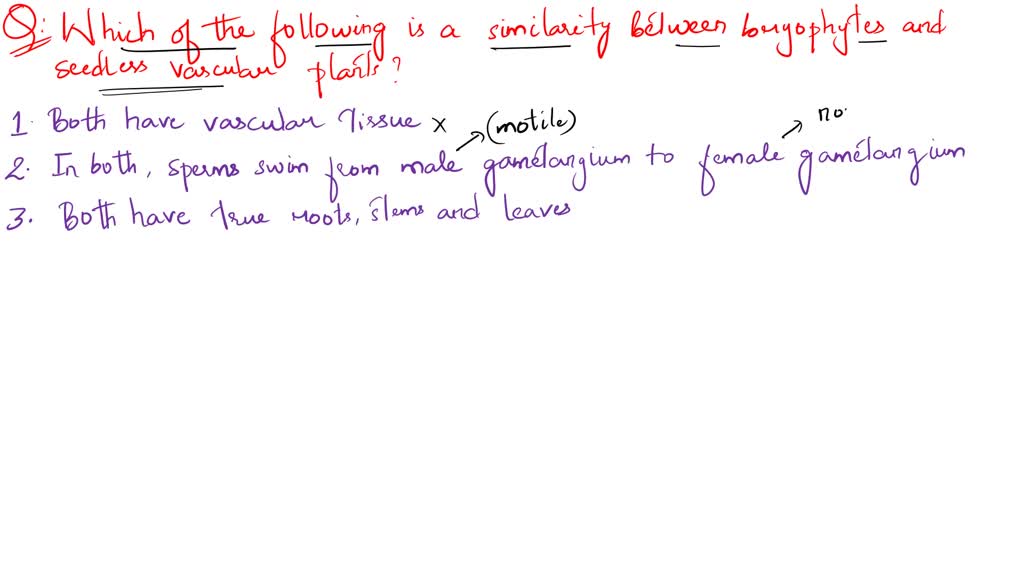 Q: Which of the following is a similarity between bryophytes and
seedless vascular plants?
(motile) no.
1. Both have vascular tissue x
2. In both, sperms swim from male gametangium to female gametangium
3. Both have true roots, stems and leaves